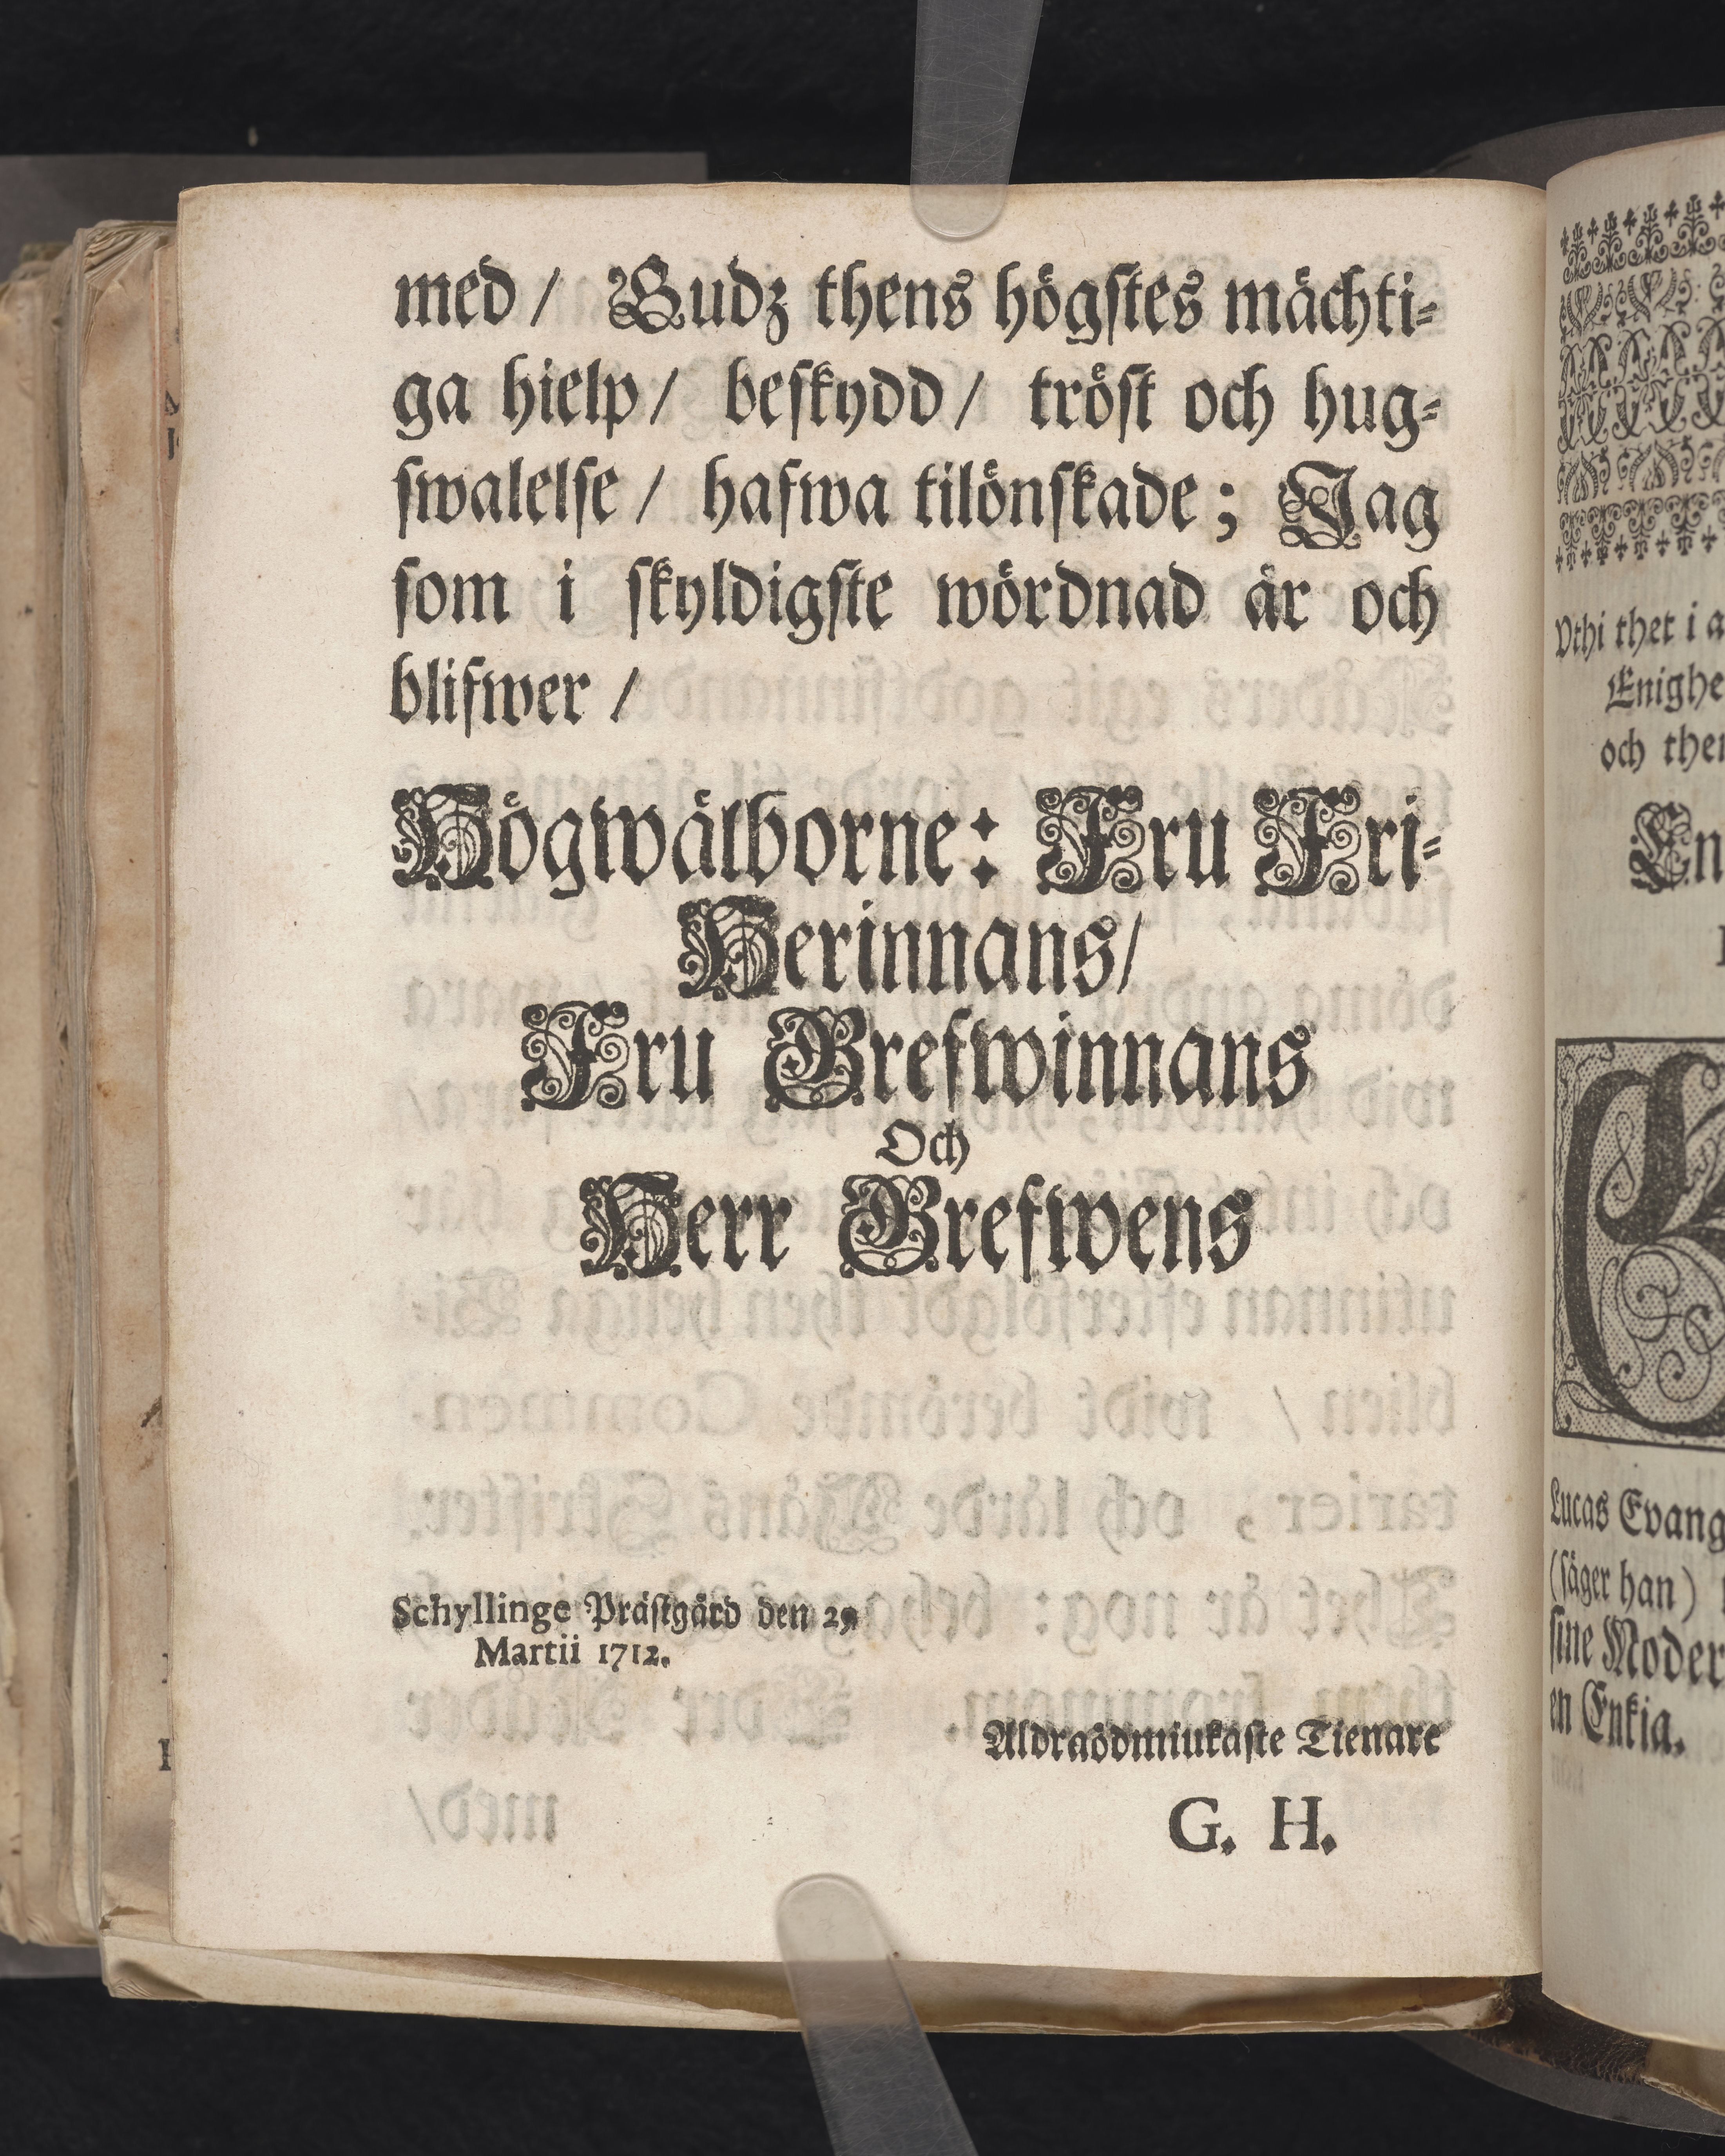 med / Gudz thens högstes mächti-
ga hielp / beskydd / tröst och hug-
swalelse / hafwa tilönskade ; Jag
som i skyldigste wördnad är och
blifwer /
Högwälborne: Fru Fri-
Herinnans /
Fru Grefwinnans
Och
Herr Grefwens
Schyllinge Prästgård den 29
Martii 1712.
Aldraödmiukaste Tienare
G. H.
Vthi thet i a
Enighe
och then
En
Lucas Evang
(säger han)
sine Moder
en Enkia.